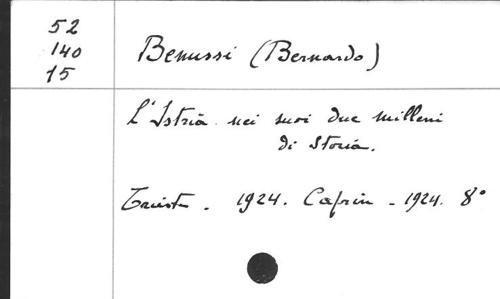 52
140
15
Benussi (Bernardo)
L'Istria nei suoi due milleni
di Storia.
Trieste. 1924. Caprin - 1924. 8°